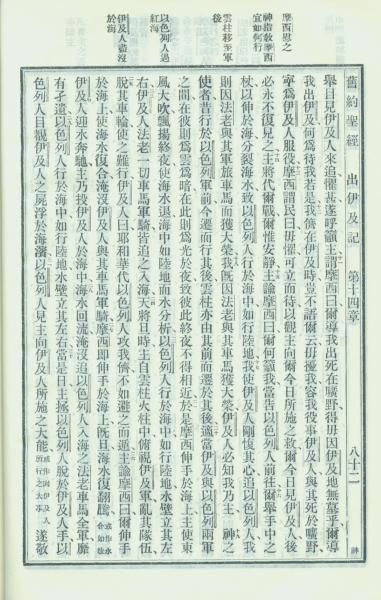 摩西慰之
神諭敎摩西
宜如何行
雲柱移至軍
後
以色列人過
紅海
伊及人盡沒
於海
舊約聖經 出伊及記 第十四章 八十二 神
舉目見伊及人來追懼甚遂呼籲主謂摩西曰爾導我出死在曠野得毋因伊及地無墓乎爾導
我出伊及何爲待我若是我儕在伊及時豈不語爾云毋擾我容我役事伊及人與其死於曠野
寧爲伊及人服役摩西謂民曰毋懼可立而待以觀主向爾今日所施之救爾今日見伊及人後
必永不復見之主將代爾戰爾惟安靜主諭摩西曰爾何籲我當告以色列人前往爾舉手中之
杖以伸於海分裂海水致以色列人行於海中如行陸地我使伊及人剛愎其心追以色列人我
則因法老與其軍旅車馬而獲大榮我旣因法老與其車馬獲大榮伊及人必知我乃主神之
使者昔行於以色列軍前今遷而行其後雲柱亦由其前而遷於其後適當伊及與以色列兩軍
之間在彼則爲雲爲暗在此則爲光於夜致彼此終夜不得相近於是摩西伸手於海上主使東
風大吹飄揚終夜使海水退海中如陸地而水分析以色列人行於海中如行陸地水壁立其左
右伊及人法老一切車馬軍騎皆追之入海天將旦時主自雲柱火柱中俯視伊及軍亂其隊伍
脫其車輪使之難行伊及人曰耶和華代以色列人攻我儕不如避之而遁主諭摩西曰爾伸手
於海上使海水復合淹沒伊及人與其車馬軍騎摩西卽伸手於海上旣旦海水復翻騰或作水合如故
伊及人迎水奔馳主乃投伊及人於海中海水回流淹沒追以色列人入海之法老車馬全軍靡
有孑遺以色列人行於海中如行陸地水壁立其左右當是日主拯以色列人脫於伊及人手以
色列人目覩伊及人之屍浮於海濱以色列人見主向伊及人所施之大能或作向伊及人所行之大事遂敬